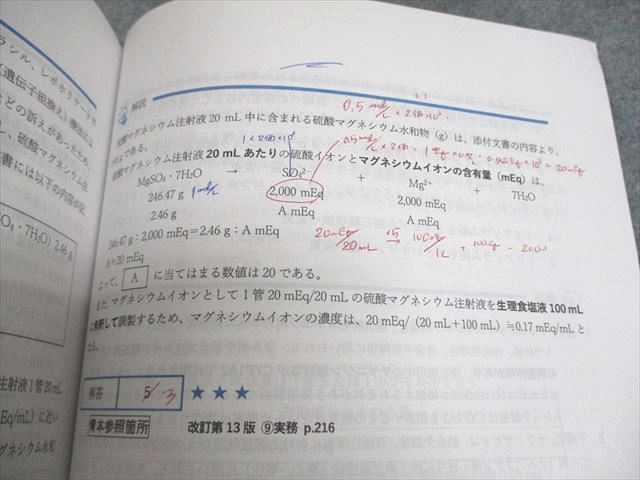 解説
0.5 mol/L × 2価 × 10³
硫酸マグネシウム注射液 20 mL 中に含まれる硫酸マグネシウム水和物（g）は、添付文書の内容より、
である。
硫酸マグネシウム注射液 20 mL あたりの硫酸イオンとマグネシウムイオンの含有量（mEq）は、
MgSO₄・7H₂O → SO₄²⁻ + Mg²⁺ + 7H₂O
246.47 g 1mol/L 2,000 mEq 2,000 mEq
2.46 g A mEq A mEq
246.47 g：2,000 mEq＝2.46 g：A mEq
A≒20 mEq
20mEq/20mL
よって、 A に当てはまる数値は 20 である。
また、マグネシウムイオンとして 1 管 20 mEq/20 mL の硫酸マグネシウム注射液を生理食塩液 100 mL
に希釈して調製するため、マグネシウムイオンの濃度は、20 mEq/（20 mL＋100 mL）≒0.17 mEq/mL と
なる。
解答 5/3 ★★★
青本参照箇所 改訂第 13 版 ⑨実務 p.216
ラシル、レボホリナート
（遺伝子組換え）療法
との訴えがあったため、
、硫酸マグネシウム注
書には以下の内容が記
O₄・7H₂O）2.46 g
注射液 1 管 20 mL
Eq/mL）に近い
グネシウム水和